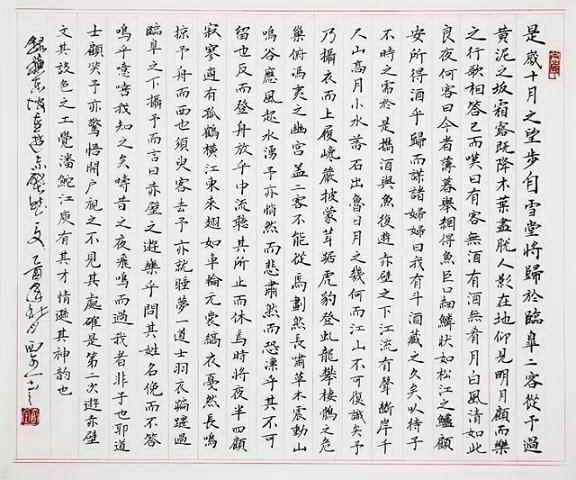 是歲十月之望步自雪堂將歸於臨皋二客從予過
黃泥之坂霜露既降木葉盡脫人影在地仰見明月顧而樂
之行歌相答已而嘆曰有客無酒有酒無肴月白風清如此
良夜何客曰今者薄暮舉網得魚巨口細鱗狀如松江之鱸顧
安所得酒乎歸而謀諸婦婦曰我有斗酒藏之久矣以待子
不時之需於是攜酒與魚復遊赤壁之下江流有聲斷岸千
尺山高月小水落石出曾日月之幾何而江山不可復識矣予
乃攝衣而上履巉巖披蒙茸踞虎豹登虬龍攀棲鶻之危
巢俯馮夷之幽宮蓋二客不能從焉劃然長嘯草木震動山
鳴谷應風起水湧予亦悄然而悲肅然而恐凜乎其不可
留也反而登舟放乎中流聽其所止而休焉時將夜半四顧
寂寥適有孤鶴橫江東來翅如車輪元裳縞衣戛然長鳴
掠予舟而西也須臾客去予亦就睡夢一道士羽衣蹁躚過
臨皋之下揖予而言曰赤壁之遊樂乎問其姓名俛而不答
嗚乎噫嘻我知之矣疇昔之夜飛鳴而過我者非子也耶道
士顧笑予亦驚悟開戶視之不見其處確是第二次遊赤壁
文其設色之工覺潘鮑江庾有其才情遜其神韻也
錄蘇東坡遊赤壁